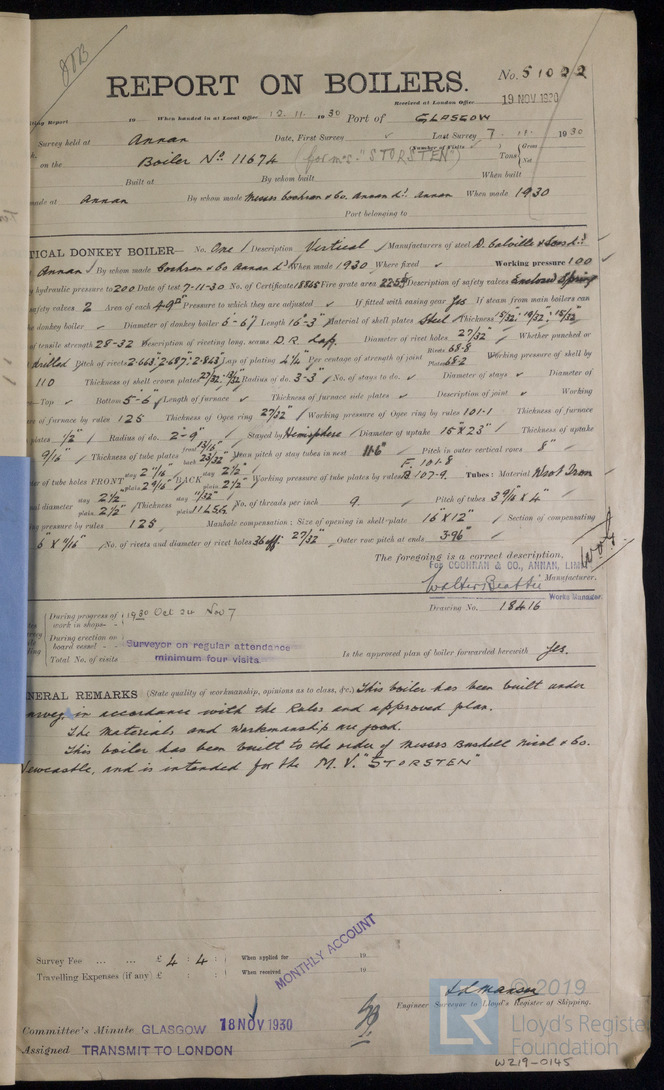 JTB
REPORT ON BOILERS.
No. 51022
Received at London Office 19 NOV 1930
ting Report 19 When handed in at Local Office 12.11.1930 Port of GLASGOW
Survey held at Annan Date, First Survey ✓ Last Survey 7 11 1930
(Number of Visits ✓ )
on the Boiler No 11674 (for m.s. "STORSTEN") Tons { Gross Net
Built at By whom built When built
made at Annan By whom made Messrs Cochran & Co. Annan Ld. Annan When made 1930
Port belonging to
TICAL DONKEY BOILER— No. One / Description Vertical ✓ Manufacturers of steel D. Colville & Sons Ld.
Annan / By whom made Cochran & Co Annan Ld. When made 1930 Where fixed ✓ Working pressure 100
hydraulic pressure to 200 Date of test 7-11-30 No. of Certificate 18865 Fire grate area Description of safety valves Enclosed Spring
safety valves 2 Area of each 4.9" Pressure to which they are adjusted ✓ If fitted with easing gear Yes If steam from main boilers can
the donkey boiler ✓ Diameter of donkey boiler 6'-6" Length 16'-3" Material of shell plates Steel Thickness
of tensile strength 28-32 Description of riveting long. seams D.R. Lap Diameter of rivet holes 27/32" Whether punched or
drilled Pitch of rivets 2.663" 2.687" 2.863" Lap of plating 4 1/4" Per centage of strength of joint Rivets 68.8 Plates 68.2 Working pressure of shell by
110 Thickness of shell crown plates Radius of do. 3'-3" No. of stays to do. ✓ Diameter of stays ✓ Diameter of
—Top ✓ Bottom 5'-6" Length of furnace ✓ Thickness of furnace side plates ✓ Description of joint ✓ Working
re of furnace by rules 125 Thickness of Ogee ring 27/32" Working pressure of Ogee ring by rules 101.1 Thickness of furnace
plates 1/2" Radius of do. 2'-9" Stayed by Hemisphere Diameter of uptake 15" X 23" Thickness of uptake
9/16" Thickness of tube plates front 13/16" back 23/32" Mean pitch of stay tubes in nest 11.6" Pitch in outer vertical rows 8"
er of tube holes FRONT stay 2 11/16" plain 2 9/16" BACK stay 2 1/2" plain 2 1/2" Working pressure of tube plates by rules F. 101.8 B. 107.9. Tubes: Material Wrot Iron
nal diameter stay 2 1/2" plain 2 1/2" Thickness stay 11/32" plain 11 LSG No. of threads per inch 9. Pitch of tubes 3 9/16 X 4"
ng pressure by rules 125 Manhole compensation: Size of opening in shell-plate 16" X 12" Section of compensating
6" X 11/16" No. of rivets and diameter of rivet holes 36 off: 27/32" Outer row pitch at ends 3.96"
The foregoing is a correct description,
For COCHRAN & CO., ANNAN, LIM
Walter Beattie Manufacturer.
Works Manager.
Drawing No. 18416
During progress of work in shops - - 1930 Oct 24 Nov 7
During erection on board vessel - -
Surveyor on regular attendance
minimum four visits
Total No. of visits
Is the approved plan of boiler forwarded herewith Yes.
NERAL REMARKS (State quality of workmanship, opinions as to class, &c.) This boiler has been built under
urvey in accordance with the Rules and approved plan.
The materials and workmanship are good.
This boiler has been built to the order of Messrs Bushell Nicol & Co.
Newcastle, and is intended for the M.V. "STORSTEN"
Survey Fee ... ... £ 4 : 4 : When applied for 19
Travelling Expenses (if any) £ : : When received 19
MONTHLY ACCOUNT
Engineer Surveyor to Lloyd's Register of Shipping.
Committee's Minute GLASGOW 18 NOV 1930
Assigned TRANSMIT TO LONDON
© 2019
LR
Lloyd's Register
Foundation
W219-0145